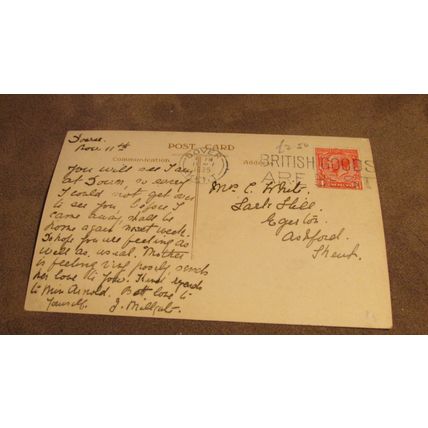 Nov. 11th
POST CARD
Communication
Address
DOVER
1925
£2.50
BRITISH GOODS
ARE
You will see I am
at Dover, so sorry
I could not get over
to see you before I
came away, shall be
home again next week.
I hope you are feeling as
well as usual. Mother
is feeling very poorly sends
her love to you. Kind regards
to Miss Arnold. Best love to
Yourself.
Mrs C. White.
Lark Hill,
Egerton,
Ashford,
Kent.